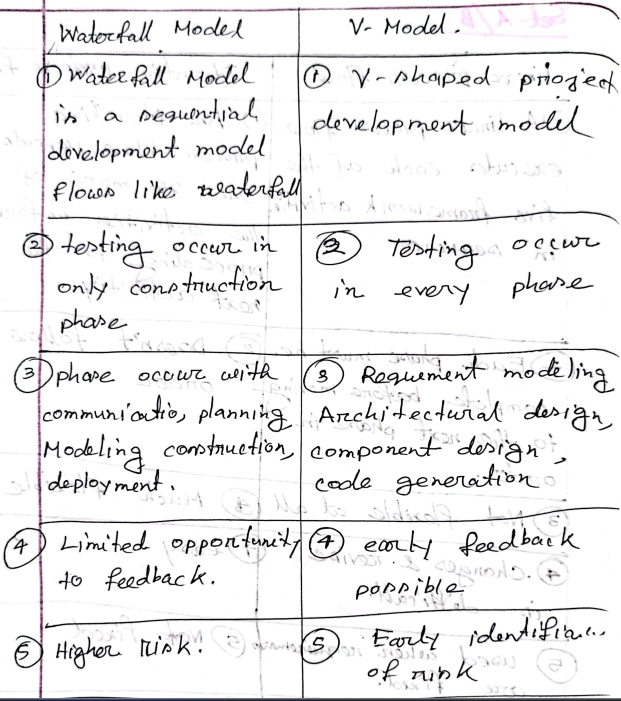 Waterfall Model
V-Model.
① Waterfall Model
is a sequential
development model
flows like waterfall
① V-shaped project
development model
② testing occur in
only construction
phase
② Testing occur
in every phase
③ phase occur with
communicatio, planning
Modeling construction,
deployment.
③ Requement modeling,
Architectural design,
component design,
code generation
④ Limited opportunity
to feedback.
④ early feedback
possible
⑤ Higher Risk.
⑤ Early
of risk